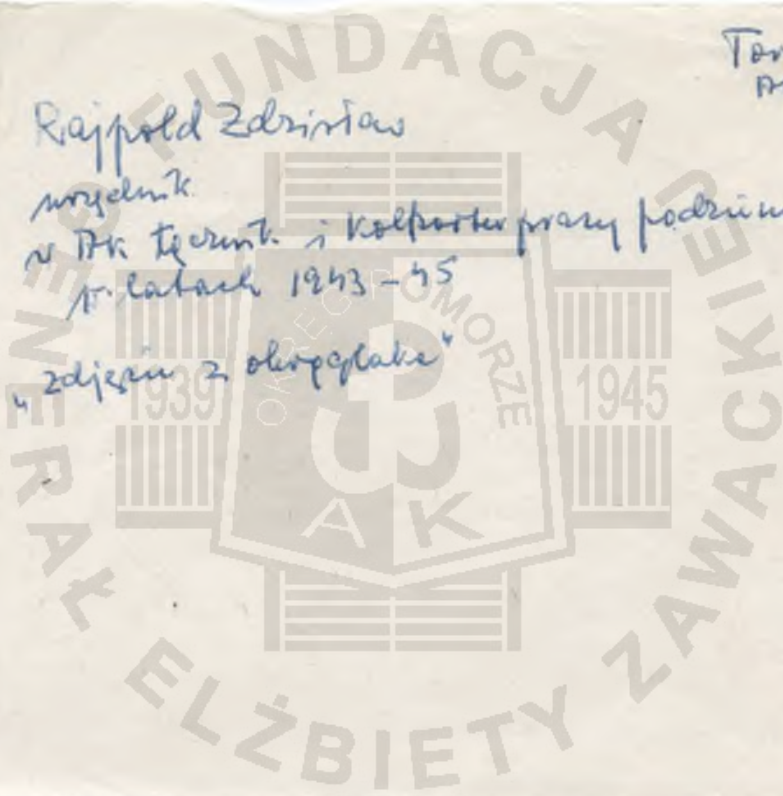 Rajpold Zdzisław
urzędnik
w AK łącznik i kolporter prasy podziem
w latach 1943-45
"zdjęcia z okrąglaka"
FUNDACJA
GENERAŁ
ELŻBIETY ZAWACKIEJ
OKRĘG POMORZE
1939
1945
AK